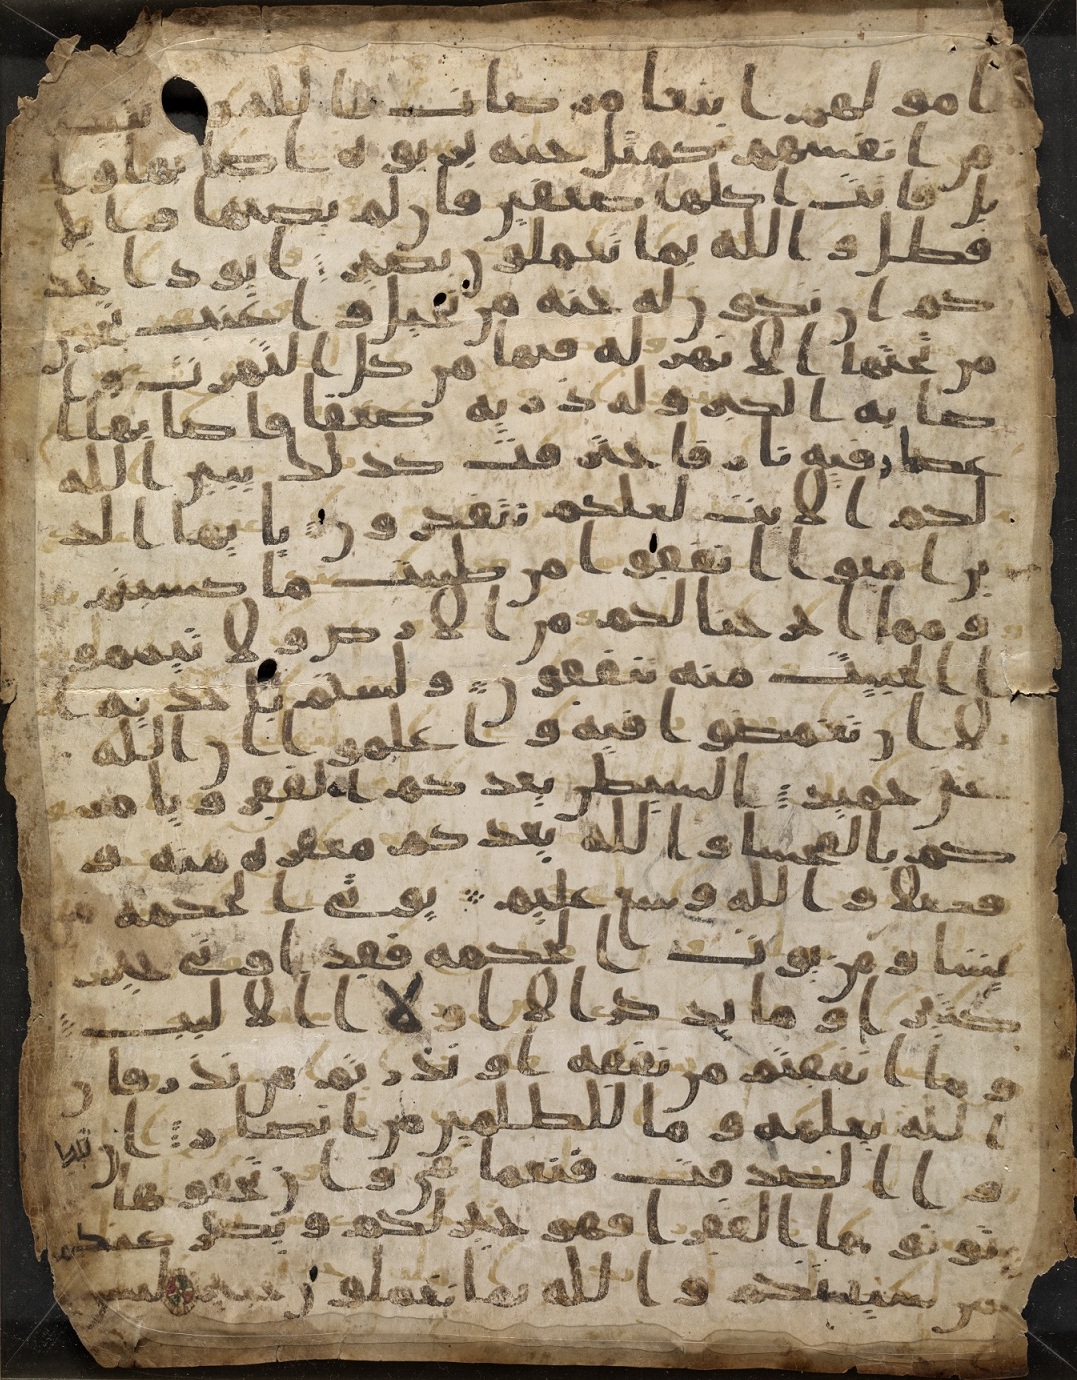 امولهم ابتغا مرضات الله وتثبيتا
من انفسهم كمثل جنه بربوه اصابها وا
بل فاتت اكلها ضعفين فان لم يصبها وابل
فطل والله بما تعملون بصير ايود احد
كم ان تكون له جنه من نخيل واعنب تجري
من تحتها الانهر له فيها من كل الثمرت وا
صابه الكبر وله ذريه ضعفا فاصابها ا
عصار فيه نار فاحترقت كذلك يبين الله
لكم الايت لعلكم تتفكرون يايها الذ
ين امنوا انفقوا من طيبت ما كسبتم
ومما اخرجنا لكم من الارض ولا تيممو
ا الخبيث منه تنفقون ولستم باخذيه ا
لا ان تغمضوا فيه واعلموا ان الله
غني حميد الشيطن يعدكم الفقر ويامر
كم بالفحشا والله يعدكم مغفره منه و
فضلا والله وسع عليم يوتي الحكمه من
يشا ومن يوت الحكمه فقد اوتي خيرا
كثيرا وما يذكر الا اولا الالبب
وما انفقتم من نفقه او نذرتم من نذر فان
الله يعلمه وما للظلمين من انصار ان تبد
وا الصدقت فنعما هي وان تخفوها
وتوتوها الفقرا فهو خير لكم ويكفر عنكم
من سيتكم والله بما تعملون خبير ليس